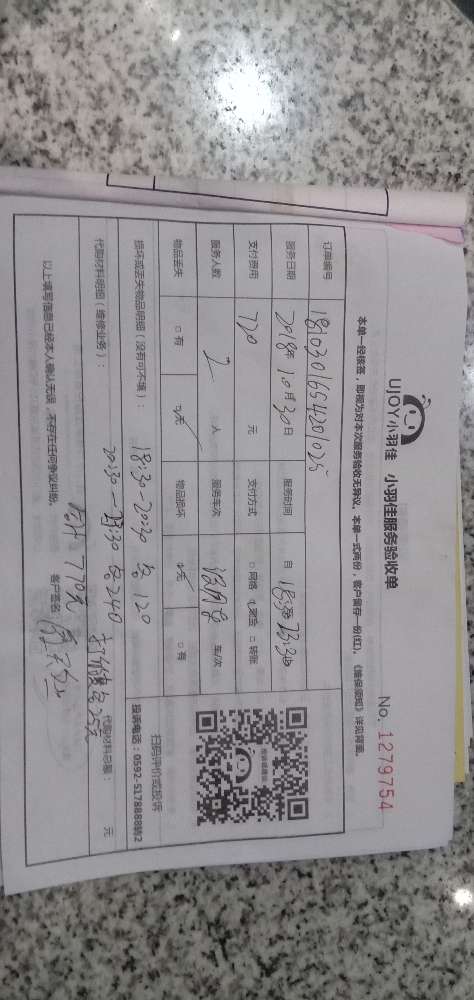 UJOY小羽佳 小羽佳服务验收单
No. 1279754
本单一经核签，即视为对本次服务验收无异议。本单一式两份，客户留存一份(红)。《维保须知》详见背面。
订单编号 1810301654201025
服务日期 2018年10月30日 服务时间 自 18:30 23:30
支付费用 770 元 支付方式 □网络 □现金 □转账
服务人数 2 人 服务车次 车/次
物品丢失 □有 □无 物品损坏 □无 □有
损坏或丢失物品明细（没有可不填）： 18:30-20:30 120
代购材料明细（维修业务）： 20:30-23:30 240
代购材料总额： 元
合计 770元
以上填写信息已经本人确认无误，不存在任何争议纠纷。 客户签名：
扫码评价或投诉
投诉电话：0592-5178888转2